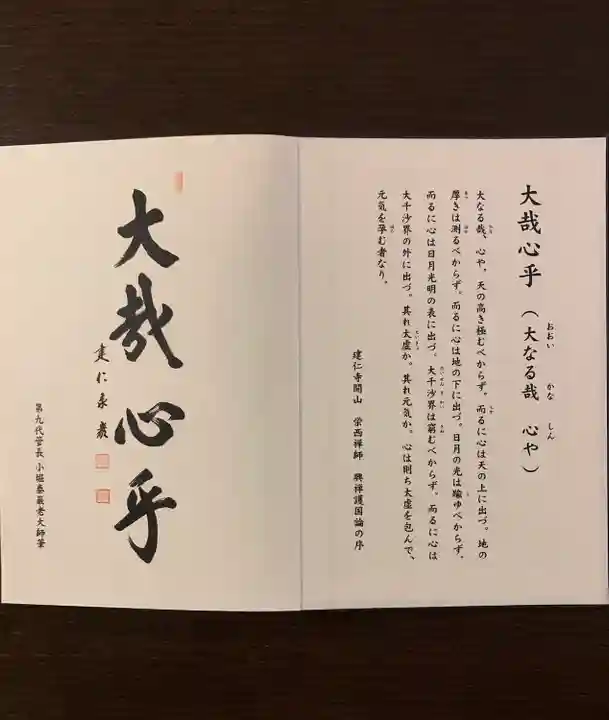 大哉心乎（大なる哉　心や）
おおい　かな　しん
大なる哉、心や、天の高き極むべからず。而るに心は天の上に出づ。地の
厚きは測るべからず。而るに心は地の下に出づ。日月の光は踰ゆべからず。
而るに心は日月光明の表に出づ。大千沙界は窮むべからず。而るに心は
大千沙界の外に出づ。其れ太虚か。其れ元気か。心は則ち太虚を包んで、
元気を孕む者なり。
建仁寺開山　栄西禅師　興禅護国論の序
大哉心乎
建仁泰巖
第九代管長 小堀泰巖老大師筆